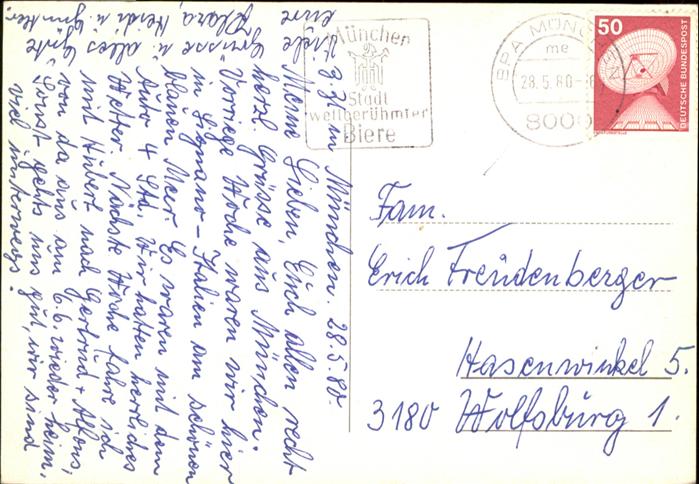 München
Stadt
weltberühmter
Biere
BPA MÜNCHEN
me
28.5.80
8000
50
DEUTSCHE BUNDESPOST
z. Zt. in München. 28.5.80.
Meine Lieben, Euch allen recht
herzl. Grüsse aus München.
Vorige Woche waren wir hier
in Lignano - Italien am schönen
blauen Meer. Es waren mit dem
Auto 4 Std. Wir hatten herrliches
Wetter. Nächste Woche fahre ich
mit Hubert nach Gertrud + Alfons,
von da aus am 6.6. wieder heim,
Sonst gehts uns gut, wir sind
viel unterwegs!
Viele Grüsse u. alles Gute
eure Klara, Heidi u. Günther.
Fam.
Erich Freudenberger
Hasenwinkel 5.
3180 Wolfsburg 1.